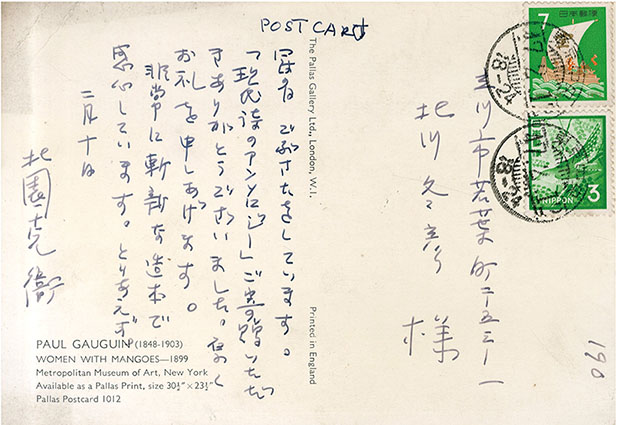 POSTCARD
7
日本郵便
NIPPON
3
立川市若葉町二ー五三ー一
北川冬彦
様
190
The Pallas Gallery Ltd., London, W.1.
Printed in England
ごぶさたをしています。
「現代詩のアンソロジー」ご恵贈いただ
きありがとうございました。厚く
お礼を申しあげます。
非常に斬新な造本で
感心しています。とりあえず
二月十日
北園克衛
PAUL GAUGUIN (1848-1903)
WOMEN WITH MANGOES—1899
Metropolitan Museum of Art, New York
Available as a Pallas Print, size 30¾" × 23¾"
Pallas Postcard 1012